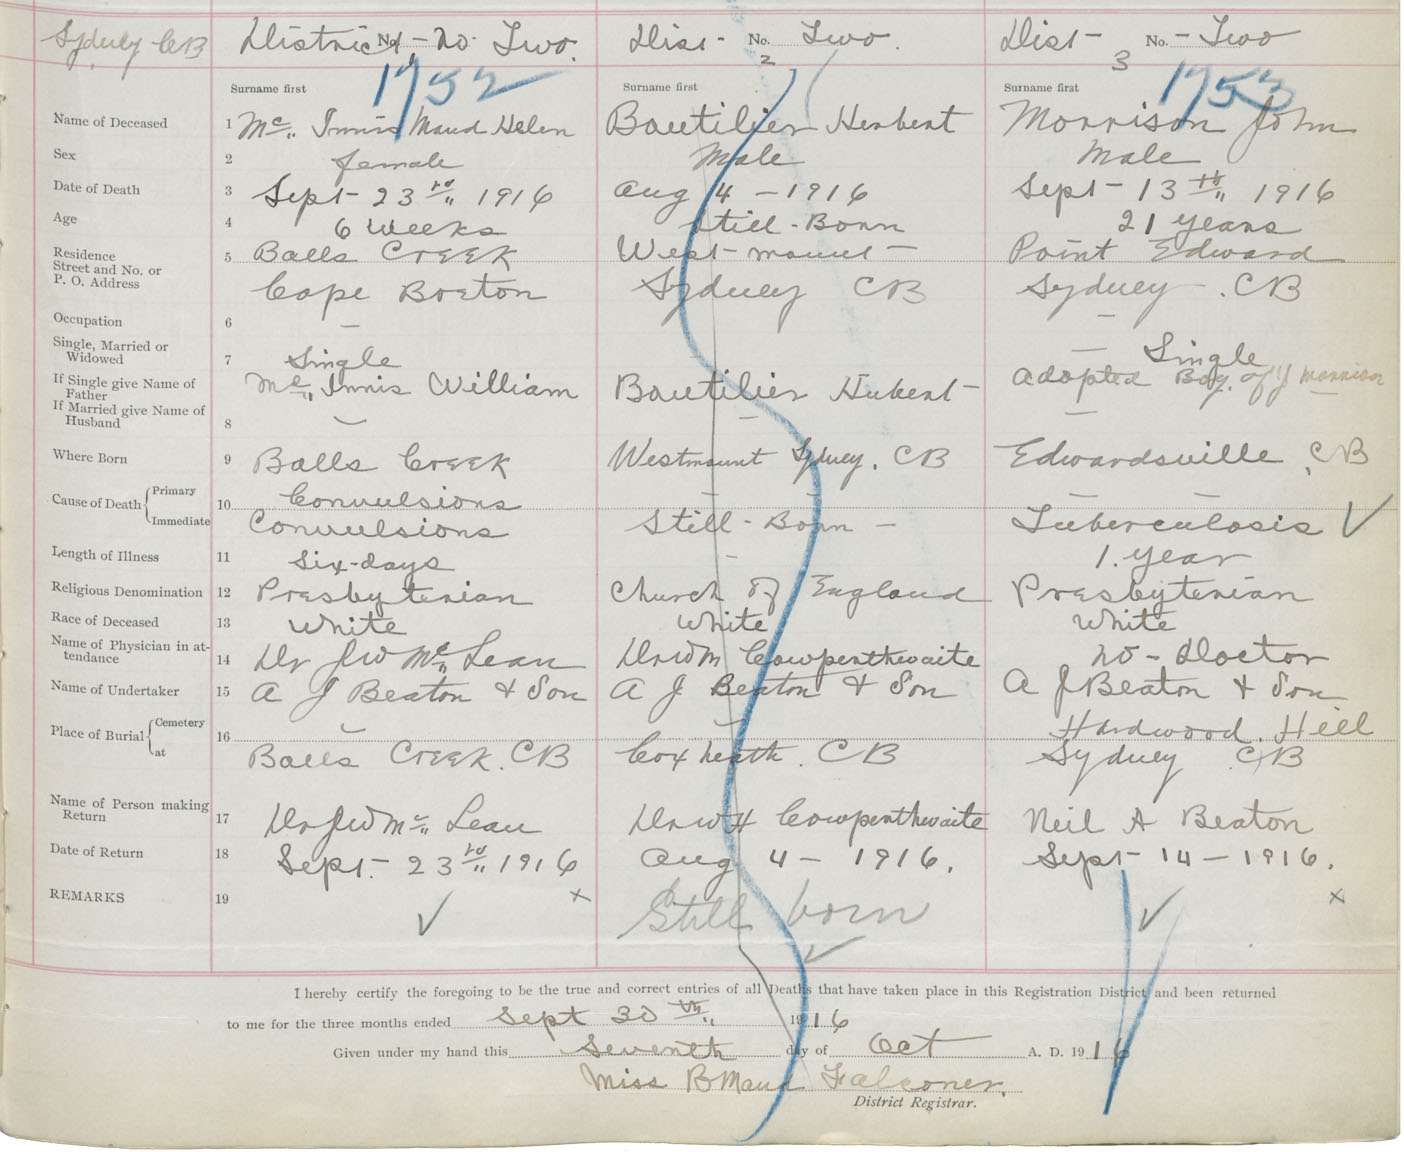 Sydney CB District No. - no. Two. Dist - No. Two. Dist - No. - Two
1 2 3
1752 1753
Surname first Surname first Surname first
Name of Deceased 1 Mc Innis Maud Helen Boutilier Herbert Morrison John
Sex 2 female Male Male
Date of Death 3 Sept - 23rd 1916 Aug 4 - 1916 Sept - 13th 1916
Age 4 6 Weeks Still-Born 21 years
Residence 5 Balls Creek West-mount - Point Edward
Street and No. or
P. O. Address Cape Breton Sydney CB Sydney - . CB
Occupation 6 — —
Single, Married or
Widowed 7 Single — Single
If Single give Name of
Father Mc Innis William Boutilier Hubert - Adopted Boy. of J Morrison
If Married give Name of
Husband 8 — — —
Where Born 9 Balls Creek Westmount Sydney. CB Edwardsville, CB
Cause of Death { Primary 10 Convulsions — — — —
Immediate Convulsions Still-Born - Tuberculosis ✓
Length of Illness 11 Six-days - 1. year
Religious Denomination 12 Presbyterian Church of England Presbyterian
Race of Deceased 13 White White White
Name of Physician in at-
tendance 14 Dr JW Mc Lean Dr WM Cowperthwaite no - Doctor
Name of Undertaker 15 A J Beaton & Son A J Beaton & Son A J Beaton & Son
Place of Burial { Cemetery 16 — — Hardwood. Hill
at Balls Creek. CB Coxheath. CB Sydney CB
Name of Person making
Return 17 Dr JW Mc Lean Dr WH Cowperthwaite Neil A Beaton
Date of Return 18 Sept. - 23rd 1916 Aug 4 - 1916. Sept - 14 - 1916.
REMARKS 19 ✓ x Still born ✓ ✓ x
I hereby certify the foregoing to be the true and correct entries of all Deaths that have taken place in this Registration District and been returned
to me for the three months ended Sept 30th 1916
Given under my hand this Seventh day of Oct A. D. 1916
Miss B Maud Falconer.
District Registrar.